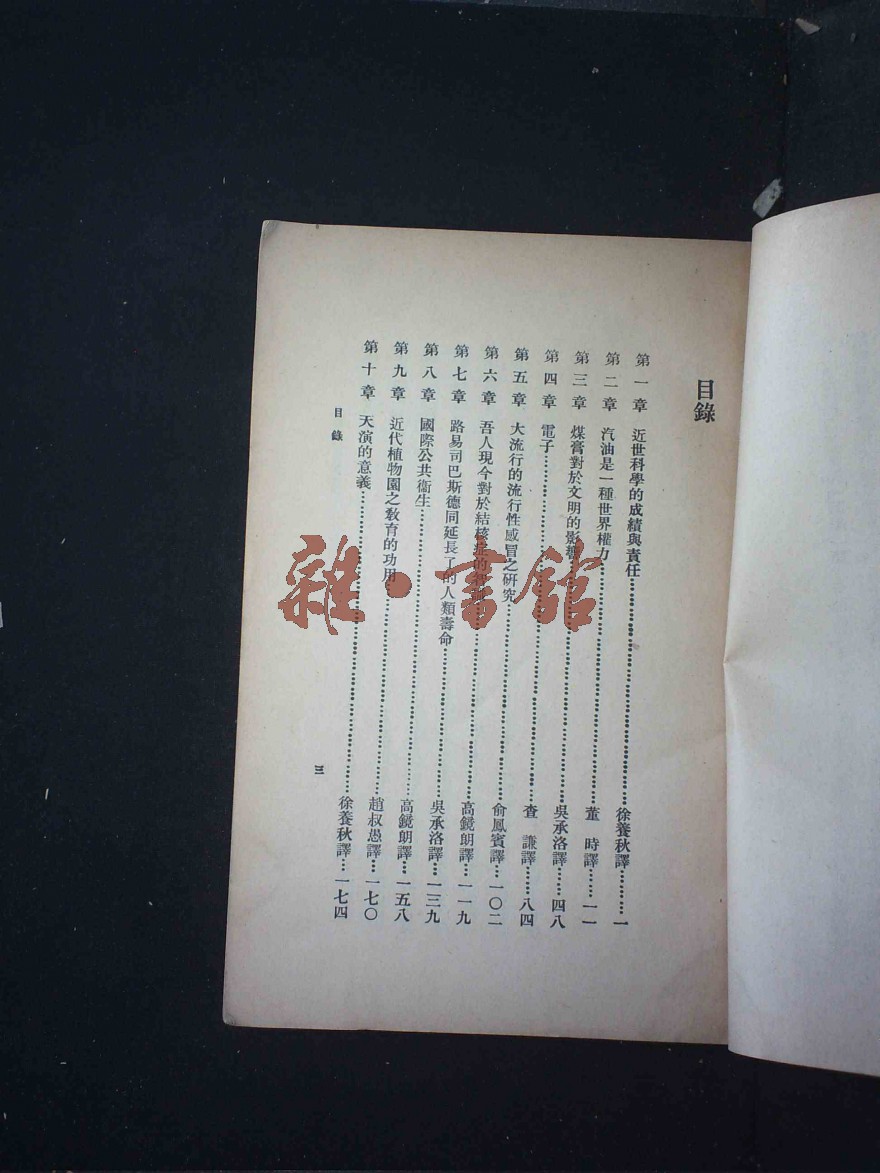 目錄
第一章 近世科學的成績與責任…………徐養秋譯………一
第二章 汽油是一種世界權力…………董 時譯……一一
第三章 煤膏對於文明的影響…………吳承洛譯……四八
第四章 電子…………查 謙譯……八四
第五章 大流行的流行性感冒之研究…………俞鳳賓譯…一〇二
第六章 吾人現今對於結核症的…………高鏡朗譯…一一九
第七章 路易司巴斯德同延長了的人類壽命…………吳承洛譯…一三九
第八章 國際公共衞生…………高鏡朗譯…一五八
第九章 近代植物園之敎育的功用…………趙叔愚譯…一七〇
第十章 天演的意義…………徐養秋譯…一七四
目錄
三
雜·書館